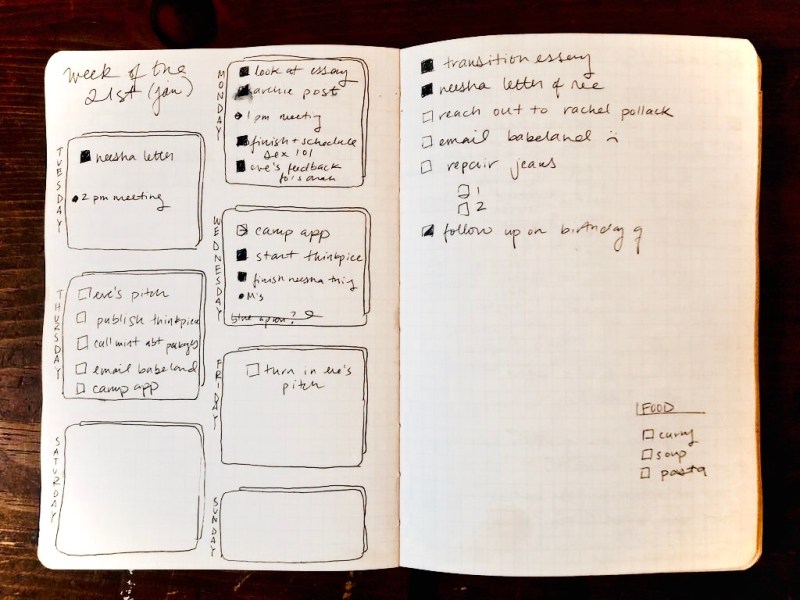 week of the
21st (jan)
MONDAY
look at essay
archie post
1 pm meeting
finish + schedule
sex 101
eve's feedback
for sarah
TUESDAY
neesha letter
2 pm meeting
WEDNESDAY
camp app
start thinkpiece
finish neesha thing
M's
THURSDAY
eve's pitch
publish thinkpiece
call mint abt packages
email babeland
camp app
FRIDAY
turn in eve's
pitch
SATURDAY
SUNDAY
transition essay
neesha letter of rec
reach out to rachel pollack
email babeland
repair jeans
1
2
follow up on birthday q
FOOD
curry
soup
pasta